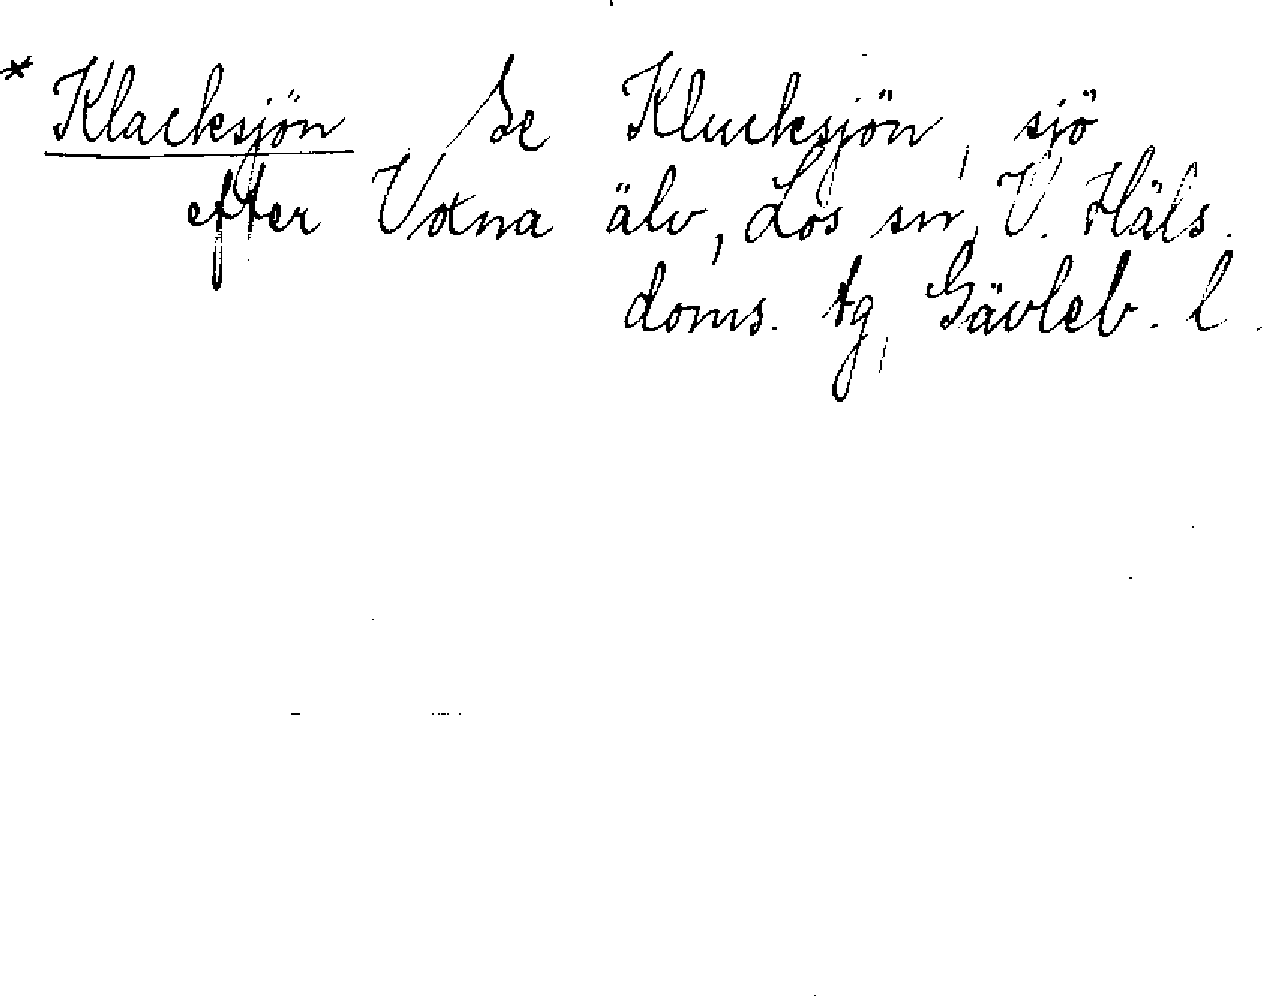 * Klacksjön. Se Klucksjön, sjö
efter Voxna älv, Los sn, V. Häls.
doms. tg, Gävleb. l.